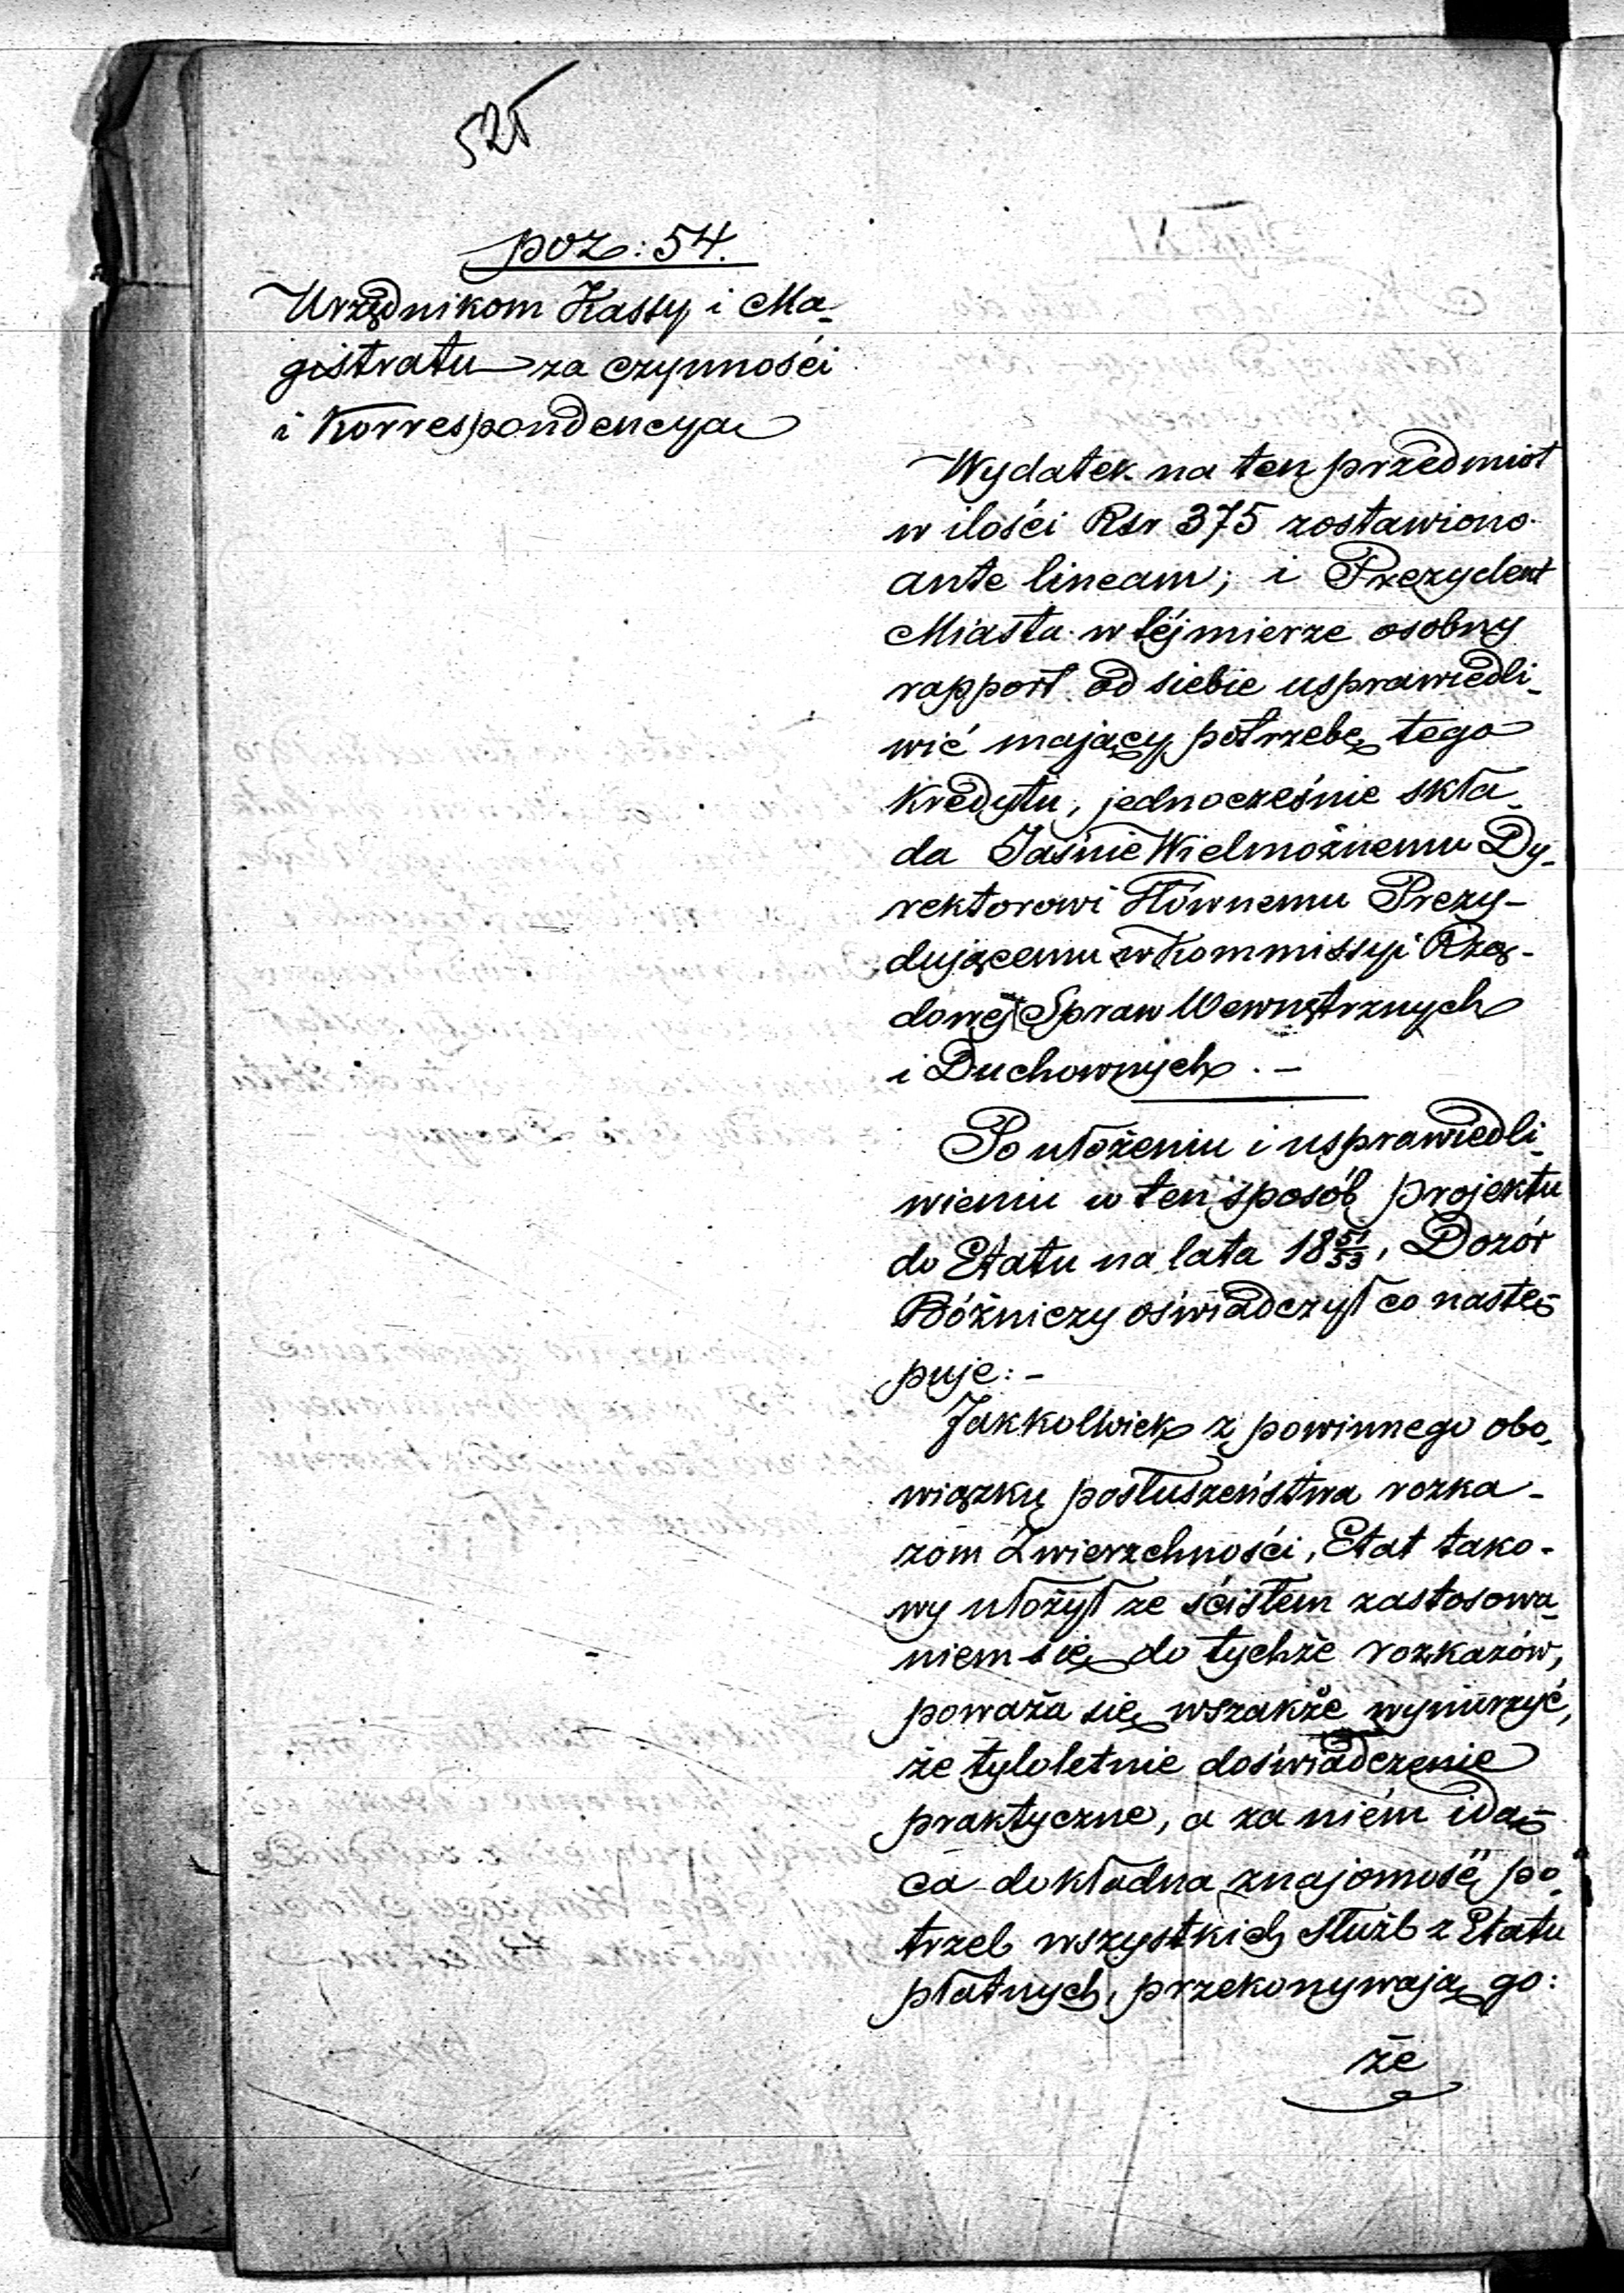 525
poz: 54.
Urzędnikom Kassy i Ma-
gistratu za czynnośći
i Korrespondencya
Wydatek na ten przedmiot
w ilośći Rsr 375 zostawiono
ante lineam; i Prezydent
Miasta w téj mierze osobny
rapport od siebie usprawiedli-
wić mający potrzebę tego
kredytu, jednocześnie skła-
da Jaśnie Wielmożnemu Dy-
rektorowi Głównemu Prezy-
dującemu w Kommissyi Rzą-
dowéj Spraw Wewnętrznych
i Duchownych. -
Po ułożeniu i usprawiedli-
wieniu w ten sposób projektu
do Etatu na lata 18 51/53, Dozór
Bóżniczy oświadczył co nastę-
puje: -
Jakkolwiek z powinnego obo-
wiązku posłuszeństwa rozka-
zom Zwierzchnośći, Etat tako-
wy ułożył ze śćisłem zastosowa-
niem się do tychże rozkazów,
poważa się wszakże wynurzyć,
że tyloletnie doświadczenie
praktyczne, a za niém idą-
ca dokładna znajomość po-
trzeb wszystkich służb z Etatu
płatnych, przekonywają go:
że